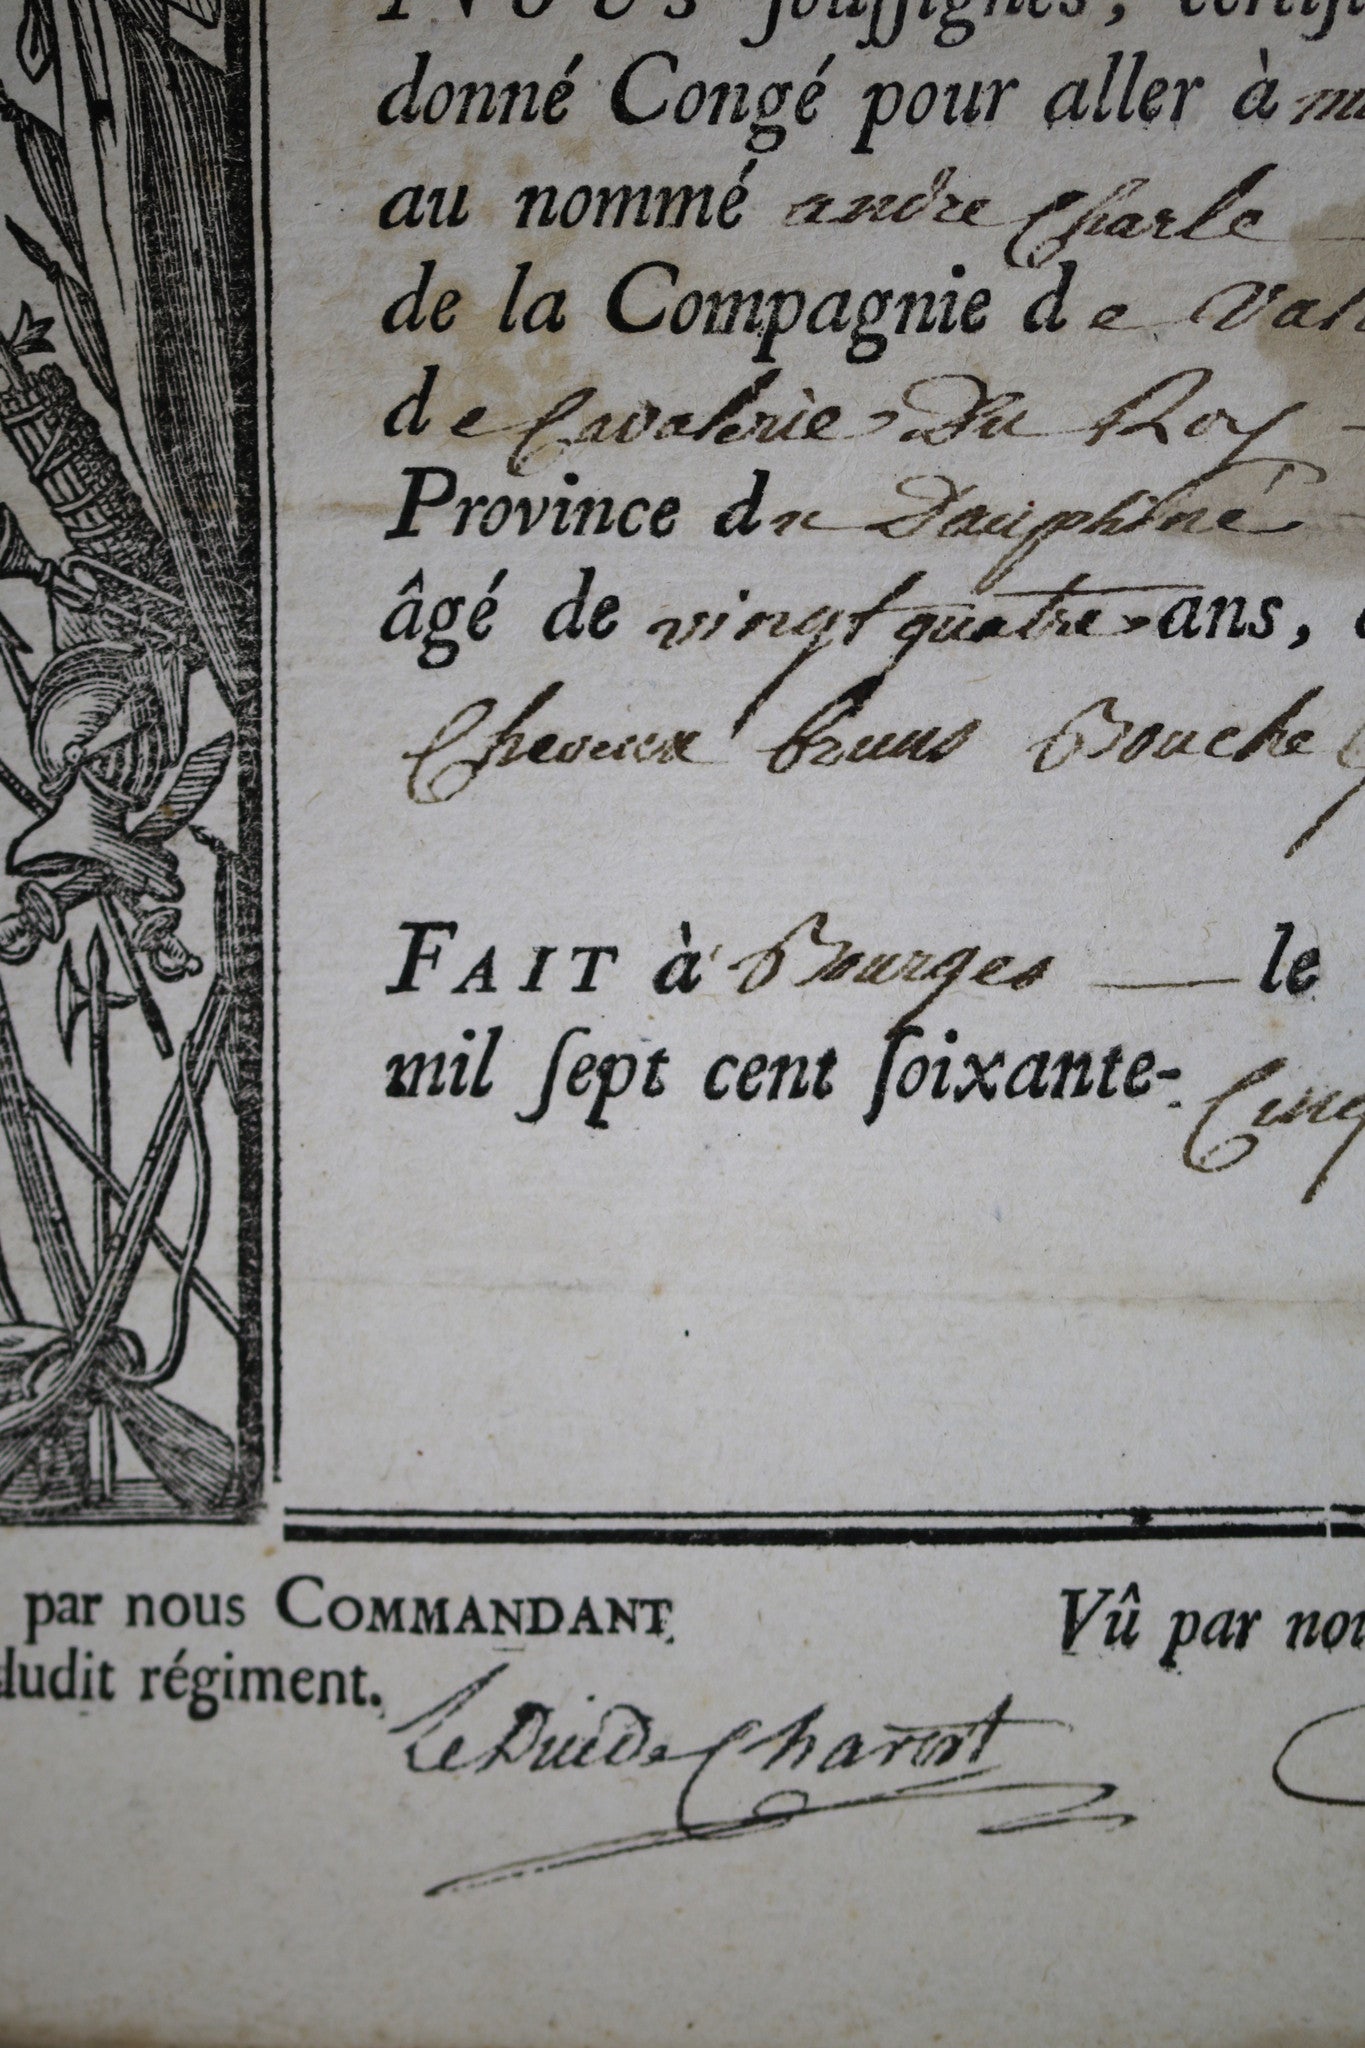 NOUS ſouſſignés, certifi
donné Congé pour aller à
au nommé andre Charle
de la Compagnie de
de Cavalerie Du Roy
Province du Dauphiné
âgé de vingt quatre ans,
Cheveux bruns Bouche
FAIT à Bourges le
mil ſept cent ſoixante- Cinq
par nous COMMANDANT
dudit régiment.
Le Duc de Charost
Vû par nou